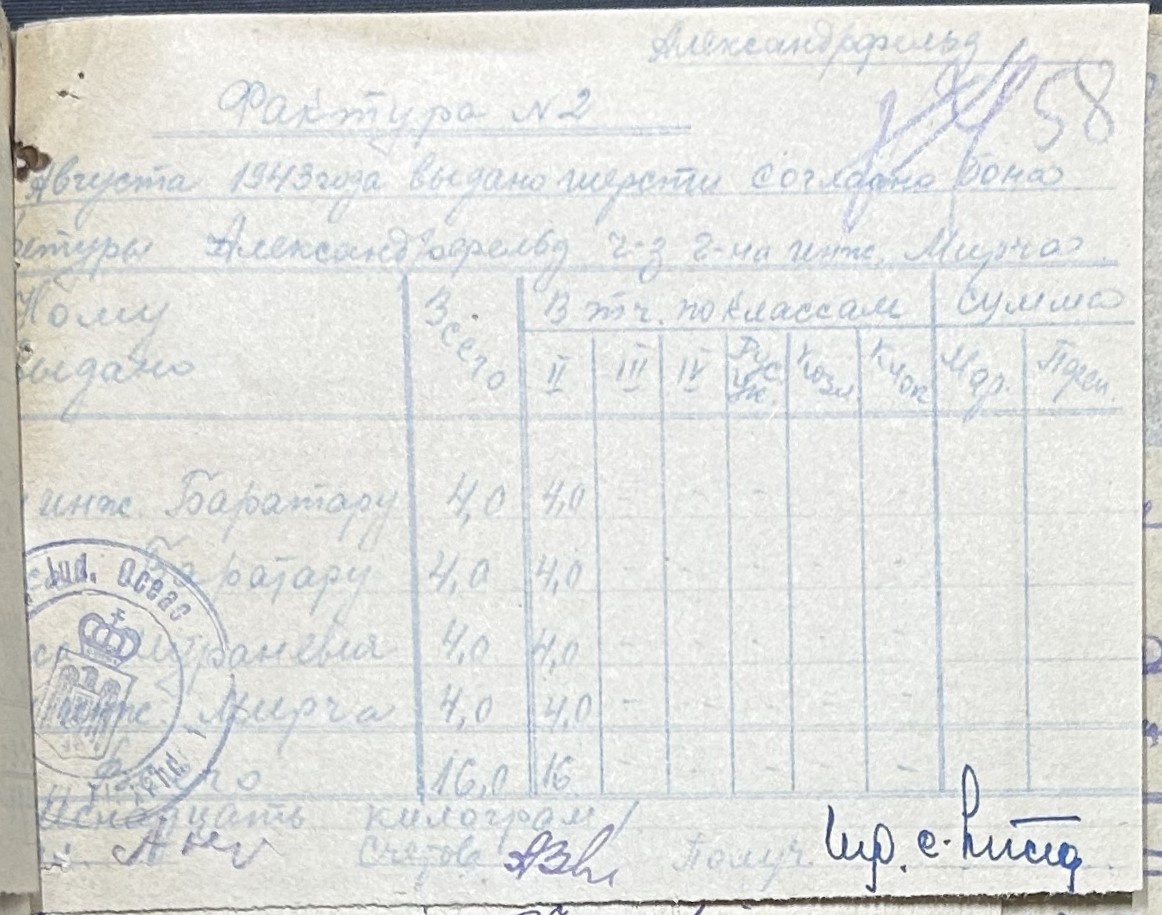 Александрфельд
58
Фактура N2
Августа 1943 года выдано шерсти согласно бона
ктуры Александрфельд ч-з г-на инж. Мирча
Кому выдано Всего В т ч. по классам сумма
II III IV Рус. Козл. Клок Мар. Пфен.
инж. Баратару 4,0 4,0 - - - - -
Баратару 4,0 4,0 - - - - -
4,0 4,0 - - - - -
инж. Мирча 4,0 4,0 - - - - -
16,0 16 - - - - -
килограм/
Счетов. Получ.
Jud. Oceac